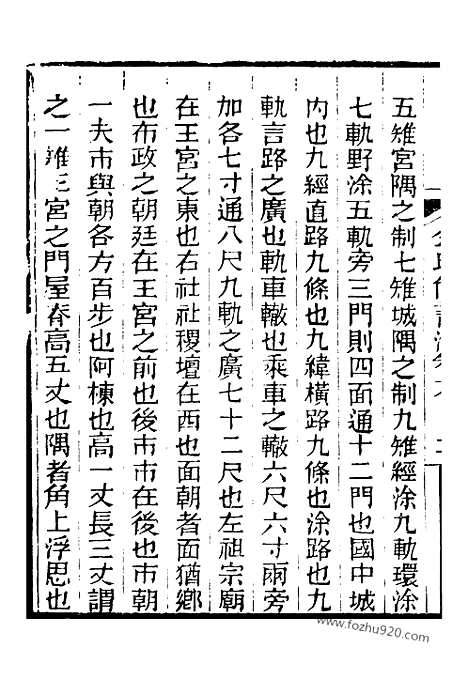 五雉宮隅之制七雉城隅之制九雉經涂九軌環涂
七軌野涂五軌旁三門則四面通十二門也國中城
内也九經直路九條也九緯橫路九條也涂路也九
軌言路之廣也軌車轍也乘車之轍六尺六寸兩旁
加各七寸通八尺九軌之廣七十二尺也左祖宗廟
在王宮之東也右社社稷壇在西也面朝者面猶鄉
也布政之朝廷在王宮之前也後市市在後也市朝
一夫市與朝各方百步也阿棟也高一丈長三丈謂
之一雉王宮之門屋脊高五丈也隅者角上浮思也
www.fozhu920.com